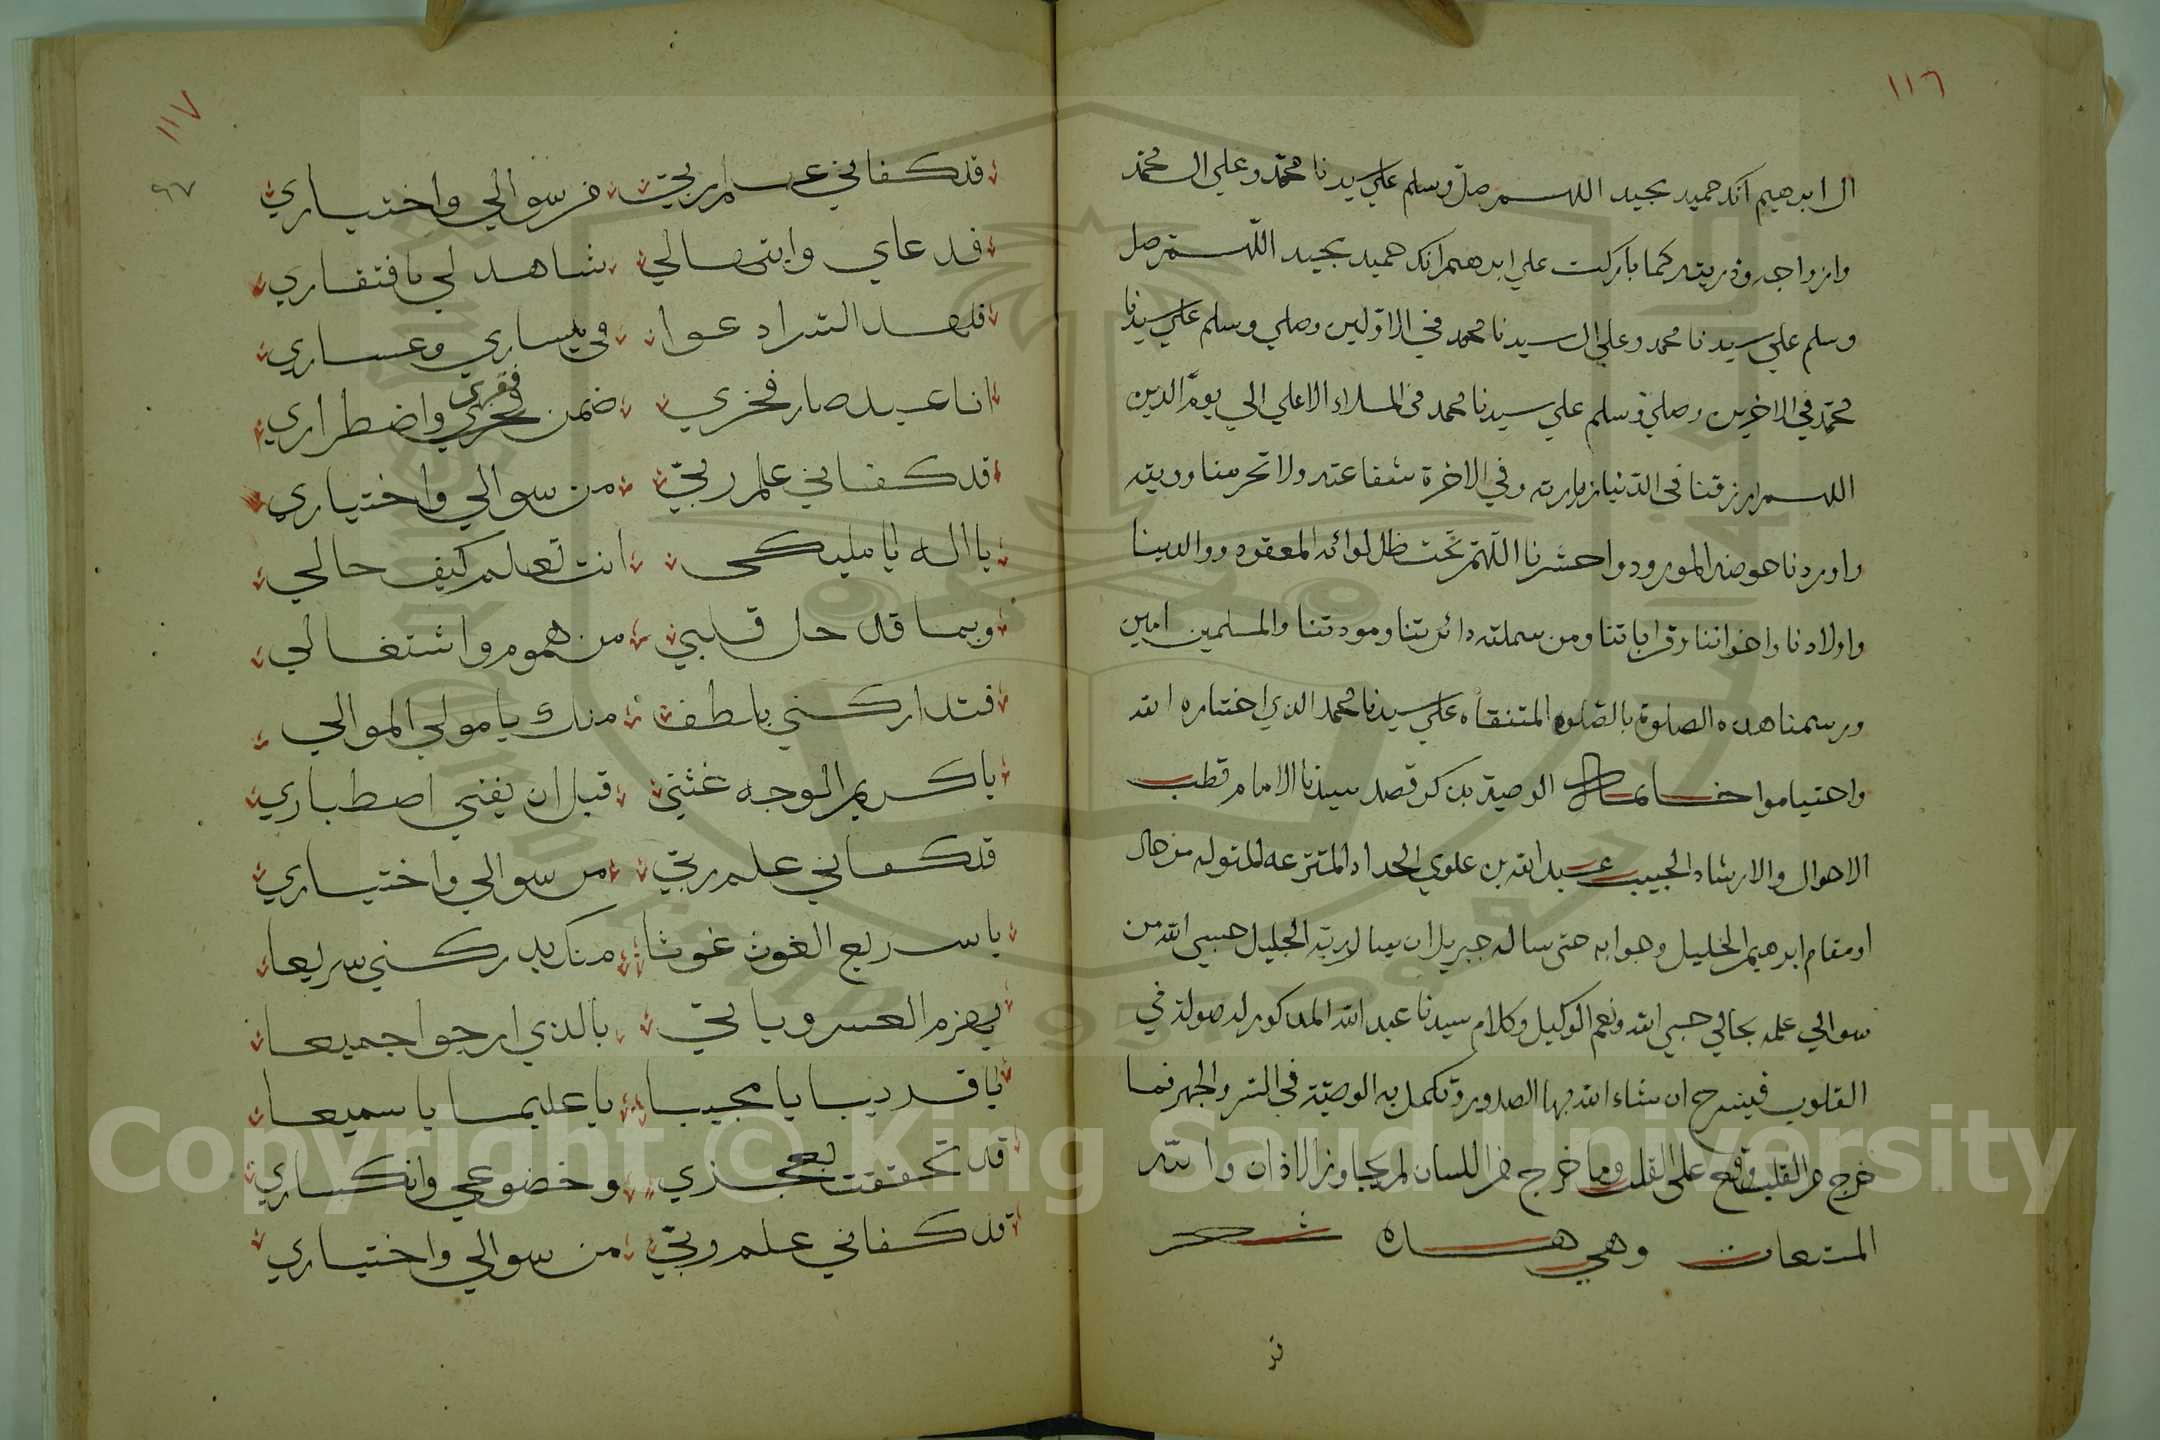 ١١٦
ال ابرهيم انك حميد مجيد اللهم صل وسلم علي سيدنا محمد وعلي ال محمد
وازواجه وذريته كما باركت علي ابرهيم انك حميد مجيد اللهم صل
وسلم علي سيدنا محمد وعلي ال سيدنا محمد في الاولين وصلي وسلم علي سيدنا
محمد في الاخرين وصلي وسلم علي سيدنا محمد في الملاء الاعلي الي يوم الدين
اللهم ارزقنا في الدنيا زيارته وفي الاخرة شفاعته ولا تحرمنا رويته
واوردنا حوضه المورود واحشرنا اللهم تحت ظل لوائه المعقود ووالدينا
واولادنا واخواننا وقراباتنا ومن شملته دائرتنا ومودتنا والمسلمين امين
ورسمنا هده الصلوة بالصلوه المتنقاه علي سيدنا محمد الذي اختاره الله
واحتياموا الوصية بذكر قصد سيدنا الامام قطب
الاحوال والارشاد الحبيب عبد الله بن علوي الحداد المتوله من حال
او مقام ابرهيم الخليل وجوابه حتى ساله جبريل ان يسال ربه الجليل حسبي الله من
سوالي علمه بحالي حسبي الله ونعم الوكيل وكلام سيدنا عبد الله المدكور له صولة في
القلوب فينشرح ان شاء الله بها الصدور وتكمل به الوصية في السر والجهر فما
خرج من القلب وقع على القلب وما خرج من اللسان لم يجاوز الاذان والله
المستعان وهي هاذه شعر
قد
١١٧
٩٧
قد كفاني علم ربي من سوالي واختياري
فدعاي وابتهالي شاهد لي بافتقاري
فلهد السر ادعوا في يساري وعساري
انا عبد صار فخري ضمن فخري واضطراري
فقري
قد كفاني علم ربي من سوالي واختياري
يا اله يا مليكي انت تعلم كيف حالي
وبما قد حل قلبي من هموم واشتغالي
فتداركني بلطف منك يا مولي الموالي
يا كريم الوجه غثني قبل ان يفني اصطباري
قد كفاني علم ربي من سوالي واختياري
يا سريع الغوث غوثا منك يدركني سريعا
يهزم العسر وياتي بالذي ارجوا جميعا
يا قريبا يا مجيبا يا عليما يا سميعا
قد تحققت بعجزي وخضوعي وانكساري
قد كفاني علم ربي من سوالي واختياري
Copyright © King Saud University